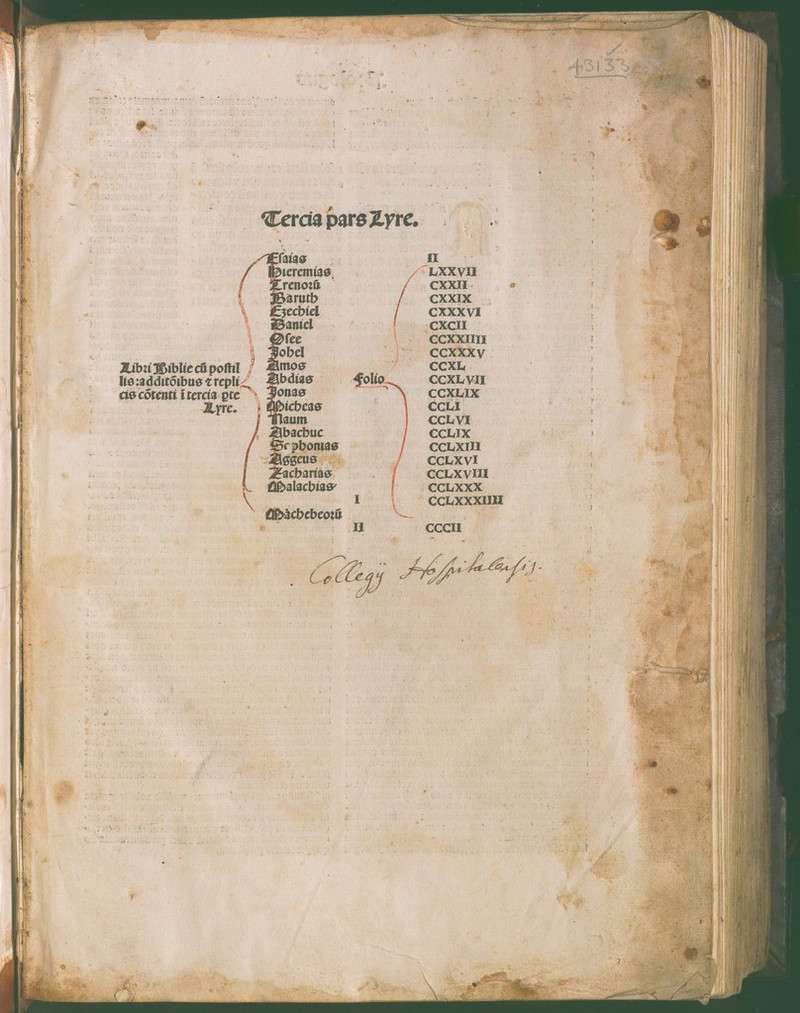 43133
Tercia pars Lyre.
Esaias II
Hieremias LXXVII
Trenorū CXXII
Baruth CXXIX
Ezechiel CXXXVI
Daniel CXCII
Osee CCXXIIII
Johel CCXXXV
Amos CCXL
Abdias CCXLVII
Jonas CCXLIX
Micheas CCLI
Naum CCLVI
Abachuc CCLIX
Sephonias CCLXIII
Aggeus CCLXVI
Zacharias CCLXVIII
Malachias CCLXXX
I CCLXXXIIII
Machebeorū
II CCCII
Libri Biblie cū postil
lis: additōibus ⁊ repli
cis cōtenti ī tercia ꝑte
Lyre.
Folio
Collegij Hospitalensis.